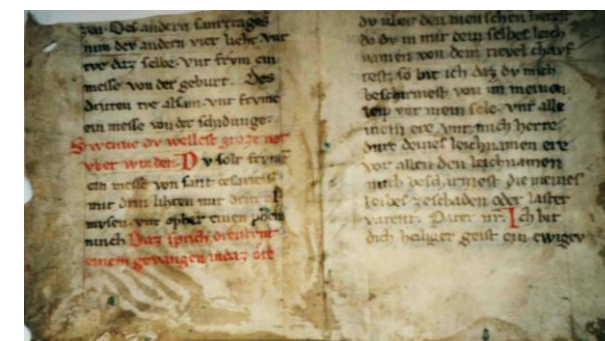 zen. Des andern suntages
nim der andern vier lieht vnt
tve daz selbe. vnt frvm ein
messe von der geburt. Des
dritten tve alsam. vnt frvme
ein messe von der schidunge.
Swenne dv wellest groze not
vber winden. Dv solt frvme
ein messe von sant
mit drin lihten mit drin
mvsen. vnt opher einen
mvnch Daz sprich
einem gevangen in daz ore
dv vber den menschen
do dv in mit dem selbes leich
namen von dem tievel
test. so bit ich daz dv mich
beschirmest vor minen
leip vnt mein sele. vnt alle
mein ere vnt mich herre
dvrc deines leichnamen ere
vor allen den leichnamen
mich beschirmest die meines
leibes ze schaden oder laster
varent. Pater nr. Ich bit
dich heiliger geist ein ewiger